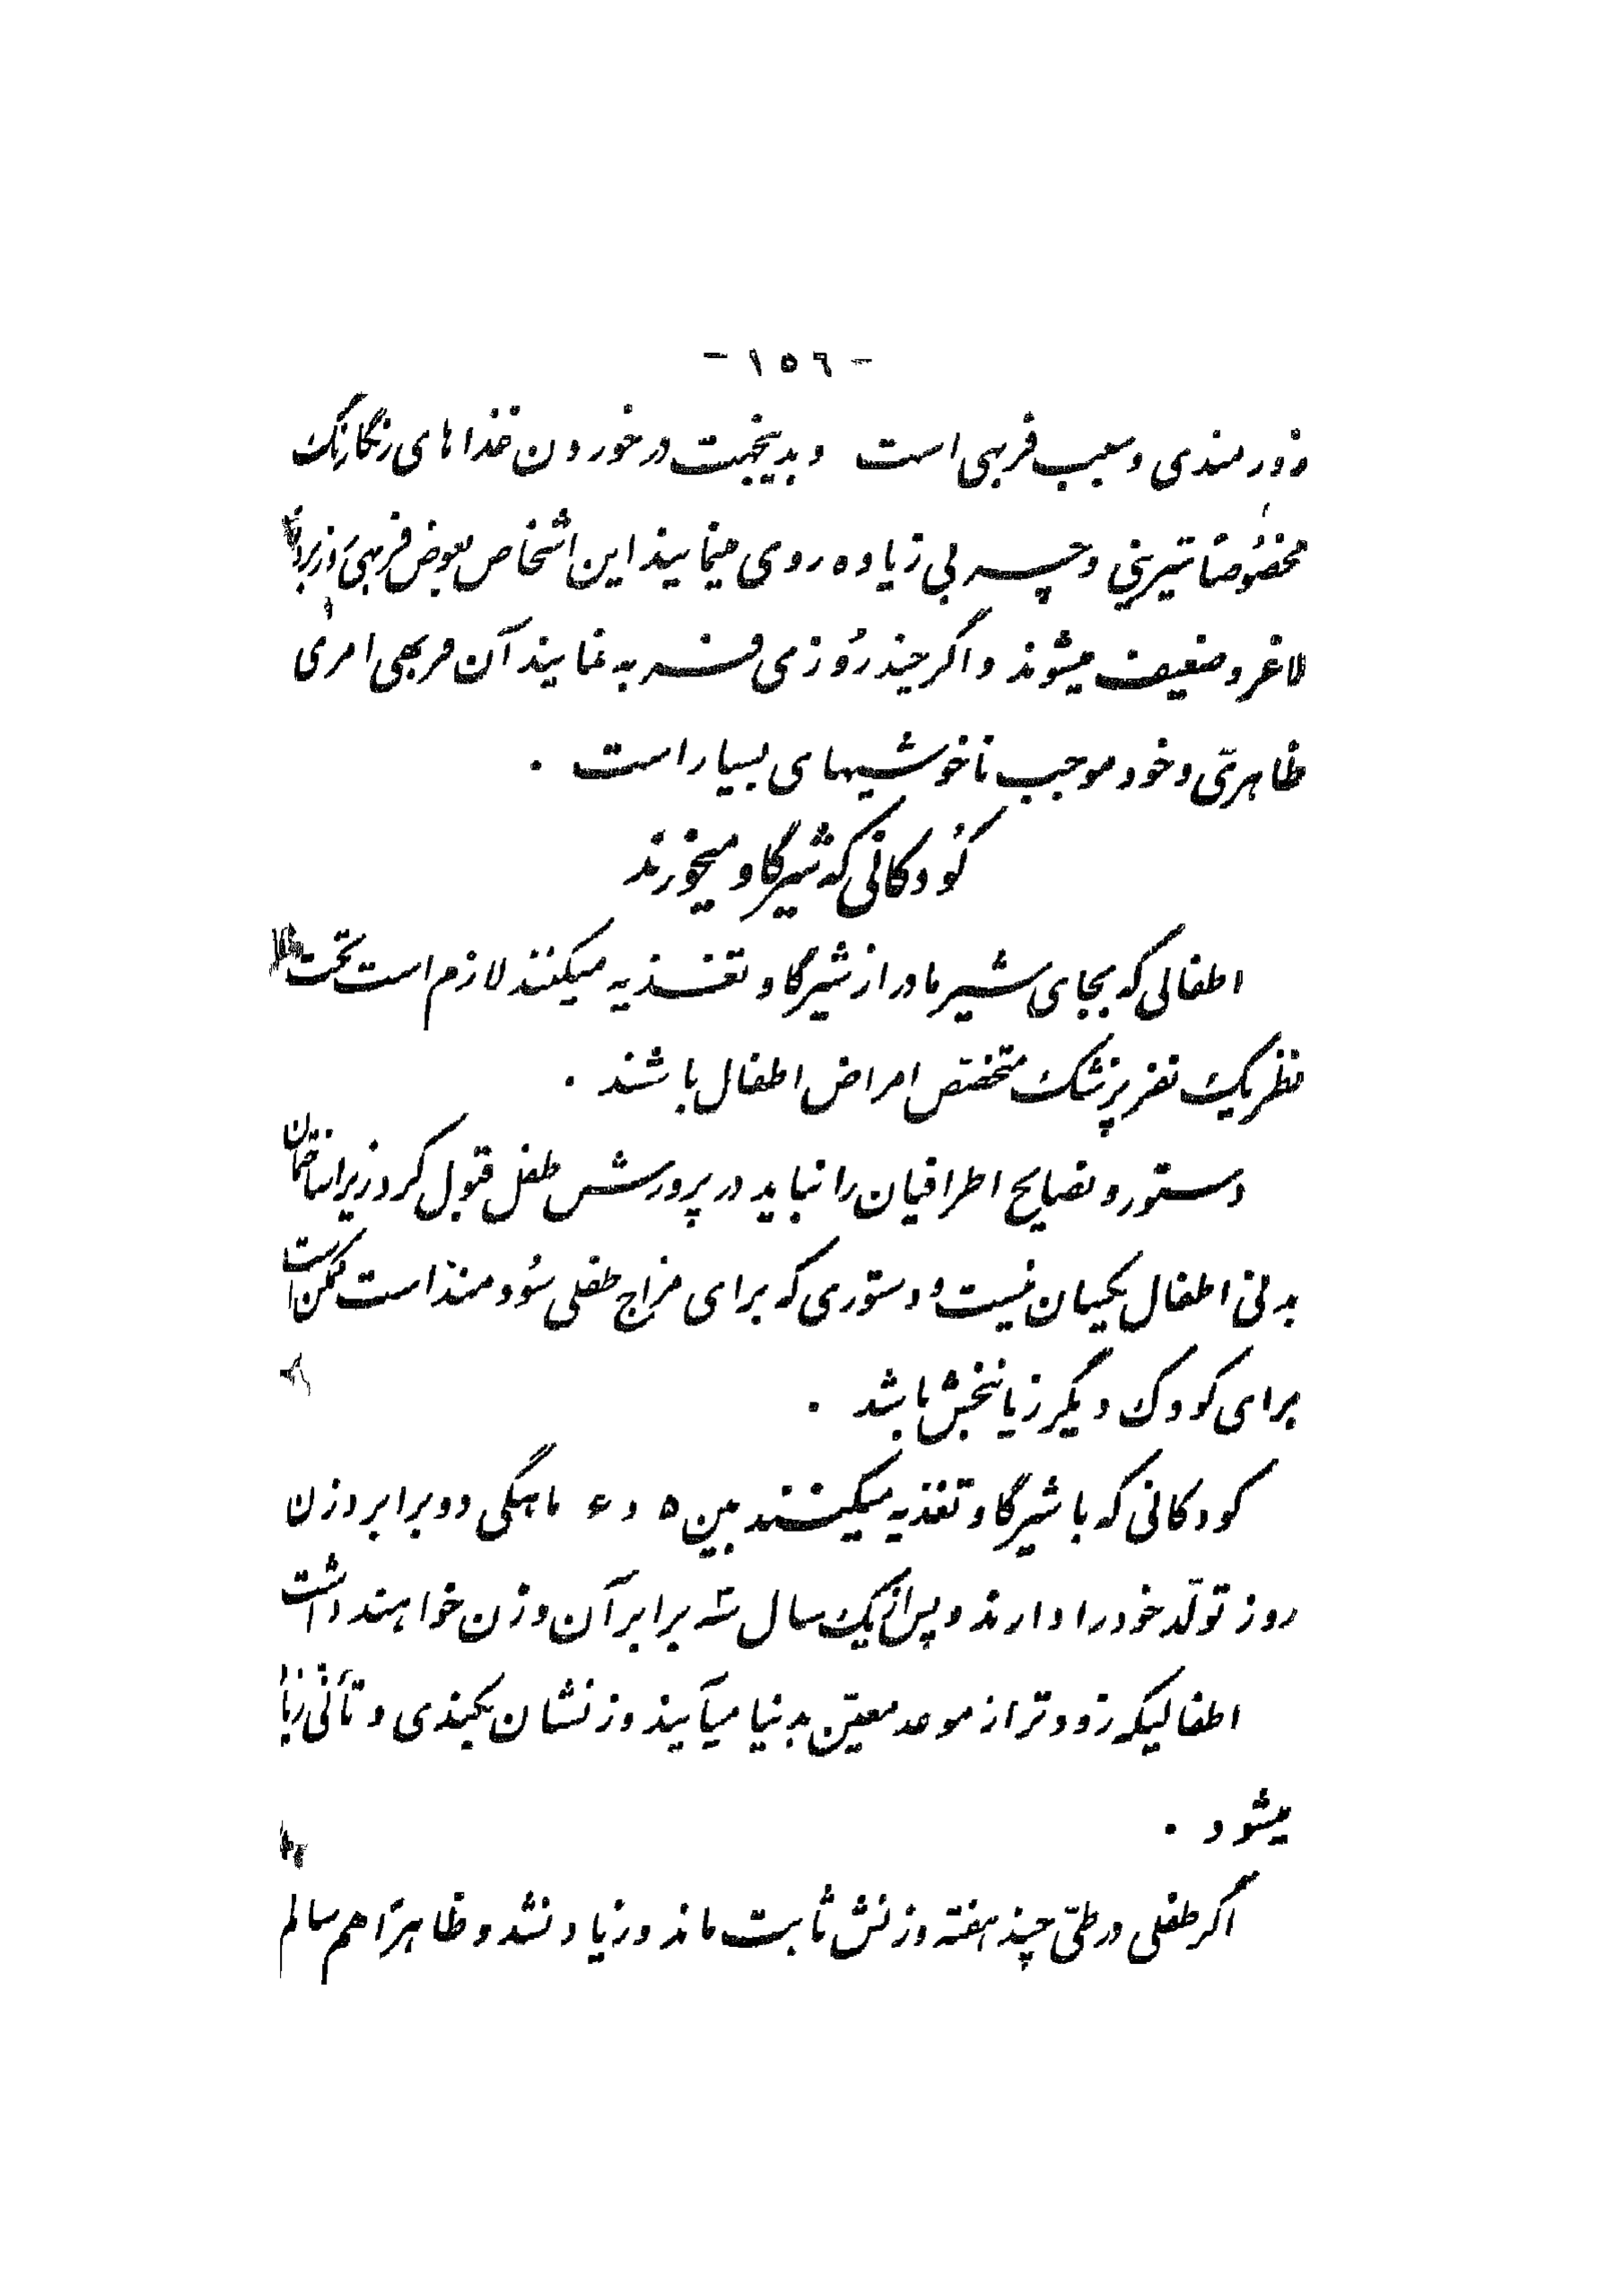 - ١٥٦ -
زورمندی و سبب فربهی است و بدینجهت در خوردن غذاهای رنگارنگ
مخصوصاً شیرینی و چربی زیاده روی مینمایند این اشخاص بعوض فربهی و
لاغر و ضعیف میشوند و اگر چند روزی فربه نمایند آن فربهی امری
ظاهری و خود موجب ناخوشیهای بسیار است .
کودکانی که شیر گاو میخورند
اطفالی که بجای شیر مادر از شیر گاو تغذیه میکنند لازم است تحت
نظر یک نفر پزشک متخصص امراض اطفال باشند .
دستور و نصایح اطرافیان را نباید در پرورش طفل قبول کرد زیرا ساختمان
بدنی اطفال یکسان نیست و دستوری که برای مزاج طفلی سودمند است ممکن است
برای کودک دیگر زیانبخش باشد .
کودکانی که با شیر گاو تغذیه میکنند بین ۵ و ۶ ماهگی دو برابر وزن
روز تولّد خود را دارند و پس از یک سال سه برابر آن وزن خواهند داشت
اطفالیکه زودتر از موعد معیّن بدنیا میآیند وزنشان بکندی و تأنی زیاد
میشود .
اگر طفلی در طیّ چند هفته وزنش ثابت ماند و زیاد نشد و ظاهراً هم سالم